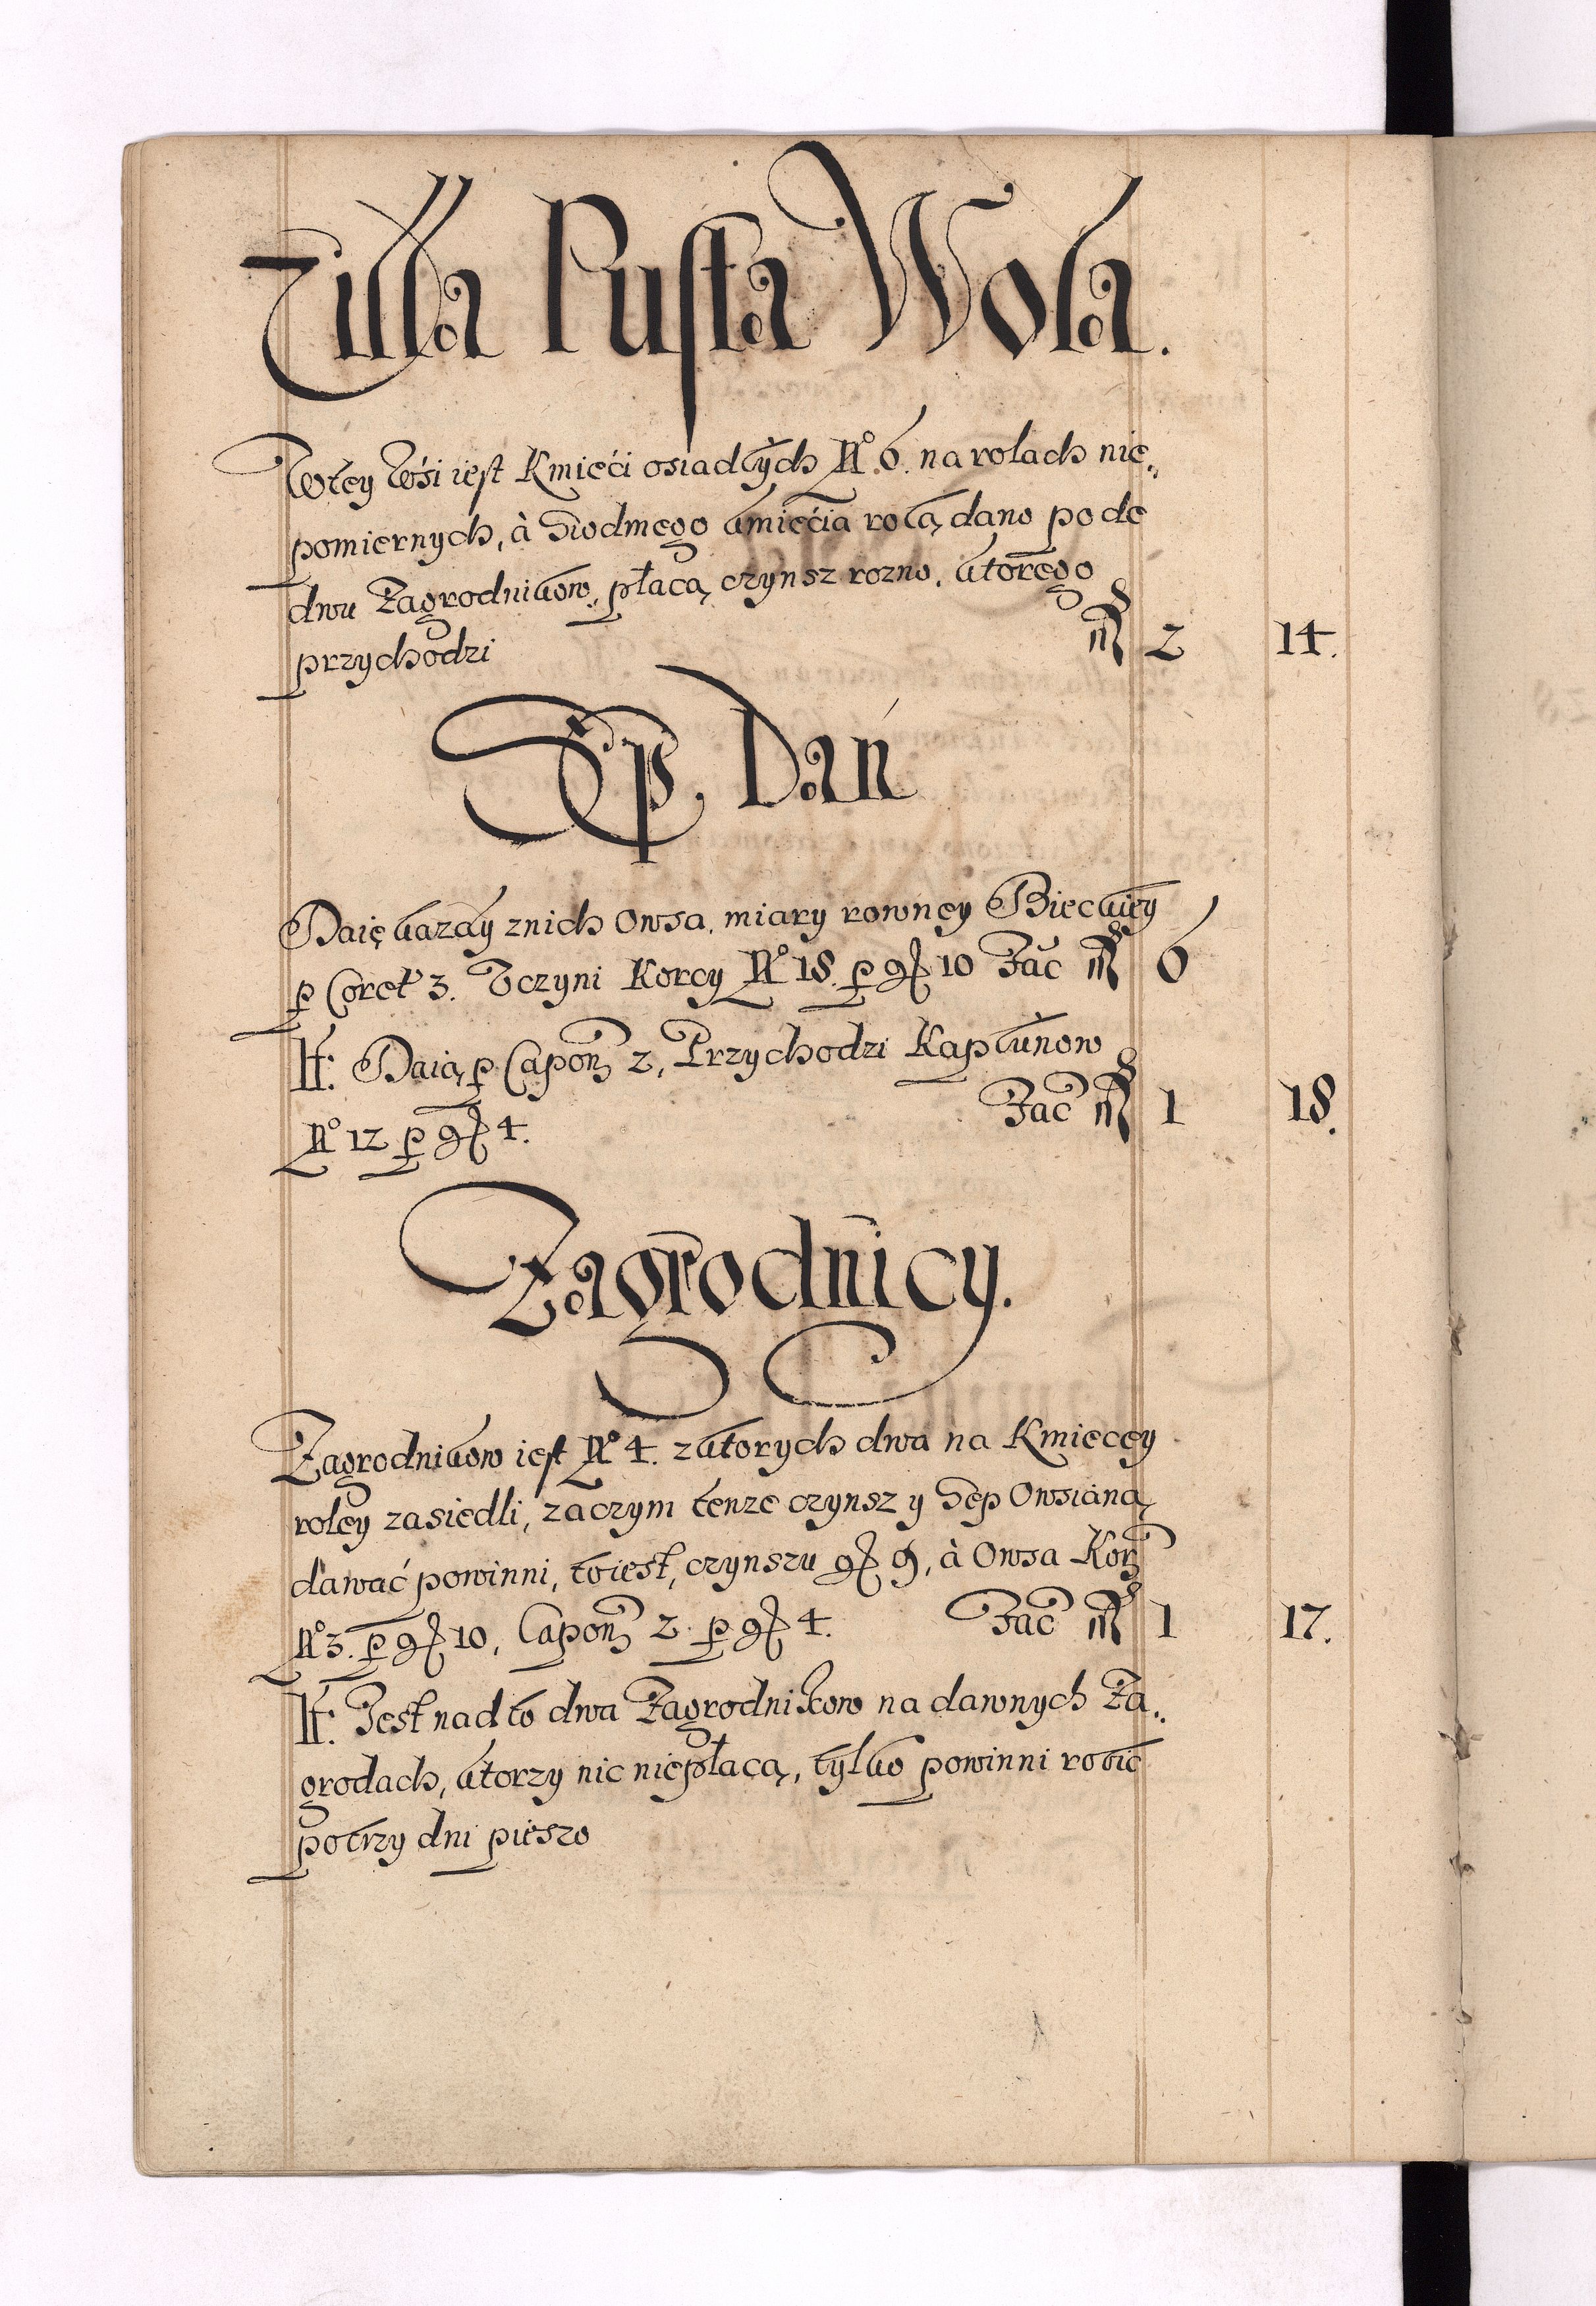 Villa Pusta Wola.
Wtey Wśi iest Kmieći osiadłych No 6. na rolach nie„
pomiernych, à Siodmego kmiećia rolą dano pode
dwu Zagrodnikow, płacą czynsz rozno, ktorego
przychodzi 2 14.
Sp. Dań
Daię kazdy znich Owsa, miary rowney Bieckiey
p Coret 3. Vczyni Korcy No 18. p gr 10 Fac 6
It: Daią p Capon 2, Przychodzi Kapłunow
No 12 p gr 4. Fac 1 18.
Zagrodnicy.
Zagrodnikow iest No 4. zktorych dwa na Kmiecey
roley zasiedli, zaczym tenze czynsz y Sep Owsianą
dawać powinni, toiest, czynszu gr 9, à Owsa Kor
No 3. p gr 10, Capon 2. p gr 4. Fac 1 17.
It: Iest nad to dwa Zagrodnikow na dawnych Za„
grodach, ktorzy nic niepłacą, tylko powinni robić
potrzy dni pieszo